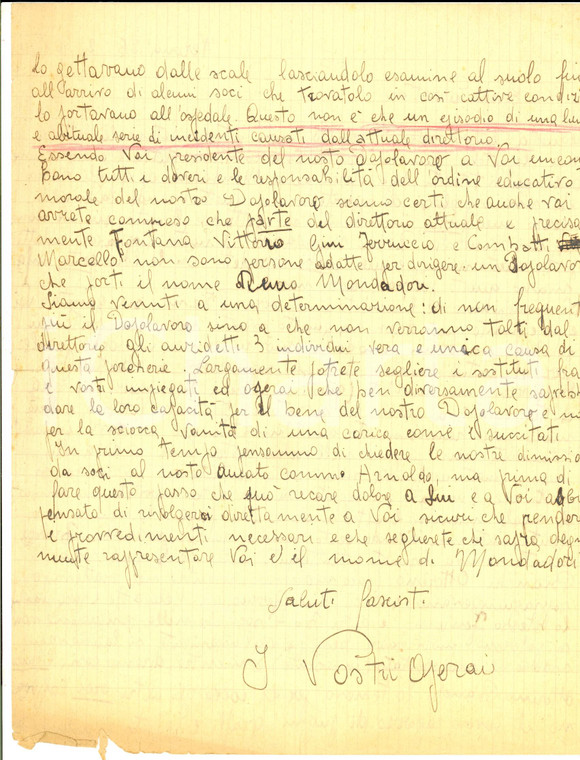 lo gettavano dalle scale lasciandolo esamine al suolo fin
all'arrivo di alcuni soci che trovatolo in così cattive condizi
lo portavano all'ospedale. Questo non è che un episodio di una lun
e abituale serie di incidenti causati dall'attuale direttorio.
Essendo Voi presidente del nostro Dopolavoro, a Voi incom
bono tutti i doveri e le responsabilità dell'ordine educativo
morale del nostro Dopolavoro siamo certi che anche voi
avrete compreso che parte del direttorio attuale e precisa
mente Fontana Vittorio Gini Ferruccio e
Marcello non sono persone adatte per dirigere un Dopolavor
che porti il nome Remo Mondadori.
Siamo venuti a una determinazione: di non frequent
più il Dopolavoro sino a che non verranno tolti dal
direttorio gli auzidetti 3 individui vera e unica causa di
questa porcherie. Largamente potrete segliere i sostituti fra
i vostri impiegati ed operai che ben diversamente sapreb
dare la loro capacità per il bene del nostro Dopolavoro e no
per la sciocca vanità di una carica come i succitati
In primo tempo pensammo di chiedere le nostre dimissio
da soci al nostro amato comm. Arnoldo, ma prima di
fare questo passo che può recare dolore a Lui e a Voi abbi
pensato di rivolgerci direttamente a Voi sicuri che prender
i provvedimenti necessari e che seglierete chi saprà degn
mente rappresentare Voi e il nome di Mondadori
Saluti fascisti
I Vostri Operai